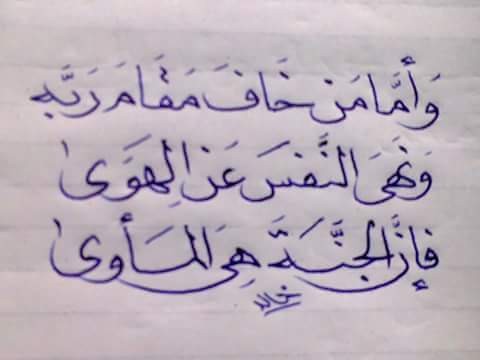 وَأمَّا مَن خَافَ مَقَامَ رَبَّهِ
وَنَهَىَ النَّفسَ عَنِ الهَوَى
فإِنَّ الجَنَّةَ هِيَ المَأوى